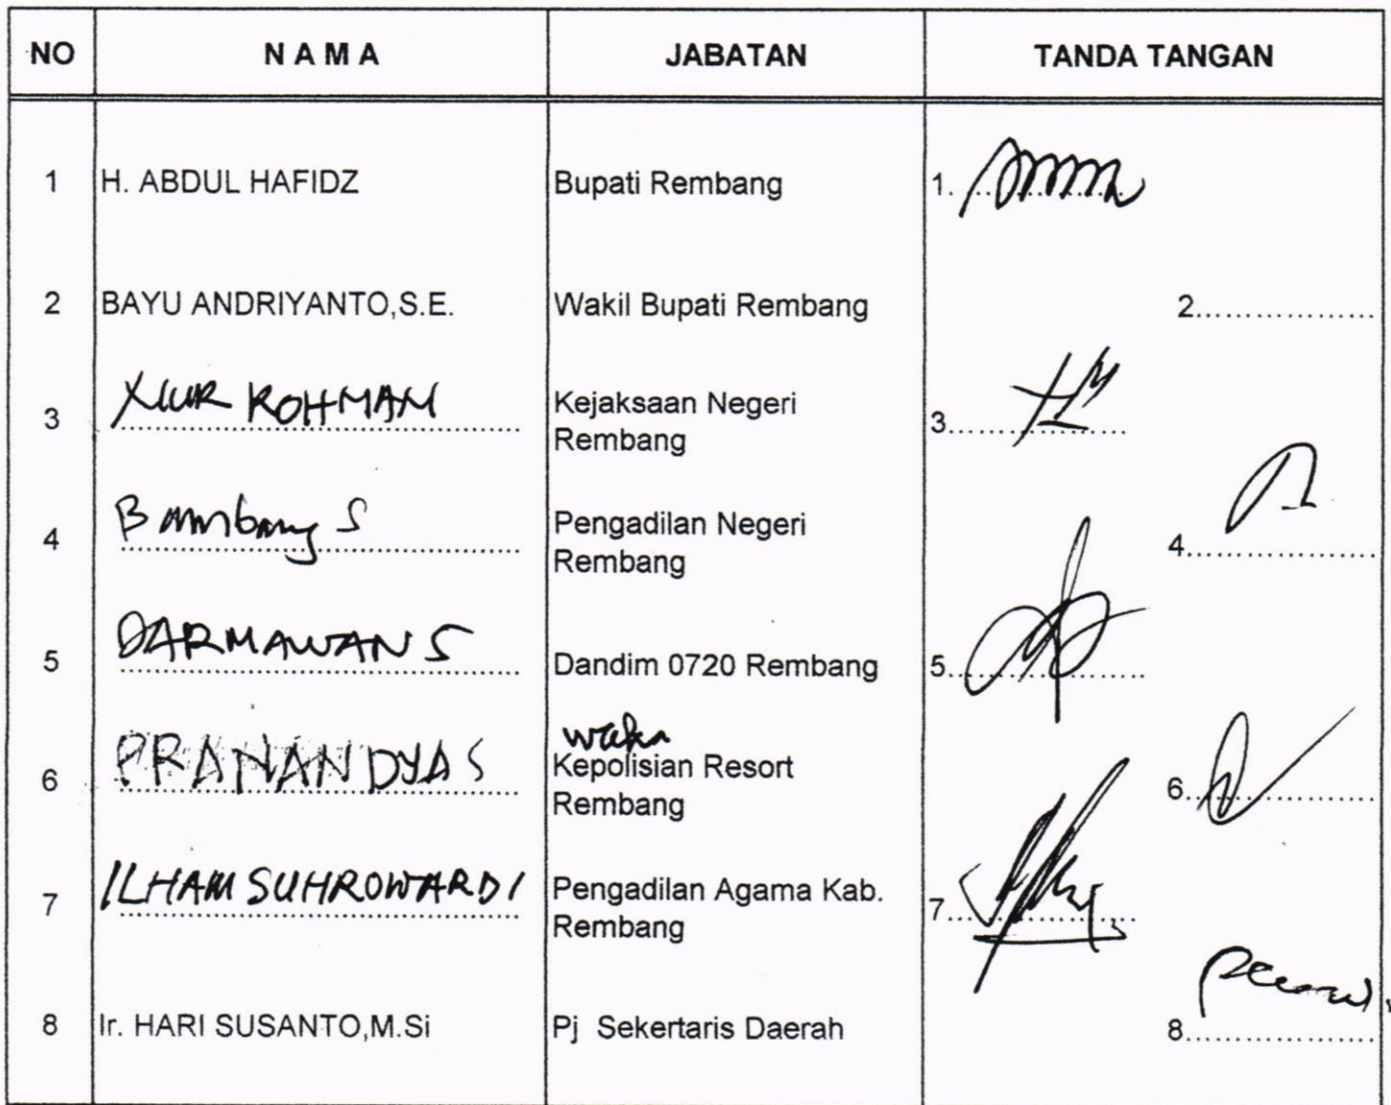 NO NAMA JABATAN TANDA TANGAN
1 H. ABDUL HAFIDZ Bupati Rembang 1.
2 BAYU ANDRIYANTO,S.E. Wakil Bupati Rembang 2.
3 NUR ROHMAN Kejaksaan Negeri Rembang 3.
4 Bambang S Pengadilan Negeri Rembang 4.
5 DARMAWAN S Dandim 0720 Rembang 5.
6 PRANANDYA S waka Kepolisian Resort Rembang 6.
7 ILHAM SUHROWARDI Pengadilan Agama Kab. Rembang 7.
8 Ir. HARI SUSANTO,M.Si Pj Sekertaris Daerah 8.